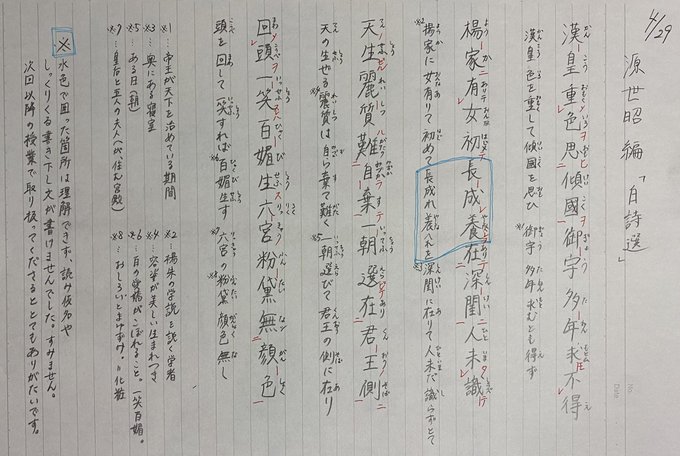 4/29
源世昭編「白詩選」
漢皇重色思傾國御宇多年求不得
漢皇色を重して傾国を思ひ 御宇多年求むとも得ず
楊家有女初長成養在深閨人未識
※2 楊家に女有りて初めて長成れ養入れを深閨に在りて人未だ識らずとて
天生麗質難自棄一朝選在君王側
天の生せる麗質は自ら棄て難く ※5一朝選びて君王の側に在り
回頭一笑百媚生六宮粉黛無顔色
頭を回して一笑すれば百媚生す ※7六宮の粉黛顔色無し
※1…帝王が天下を治めている期間
※2…楊朱の学説を説く学者
※3…奥にある寝室
※4…容姿が美しい生まれつき
※5…ある日(朝)
※6…百の愛嬌がこぼれること。一笑百媚。
※7…皇后と五人の夫人へが、住む宮殿
※8…おしろいとまゆずみ。=化粧
※ 水色で囲った箇所は理解できず、読み仮名や
しっくりくる書き下し文が書けませんでした。すみません。
次回以降の授業で取り扱ってくださるととてもありがたいです。
No.
Date